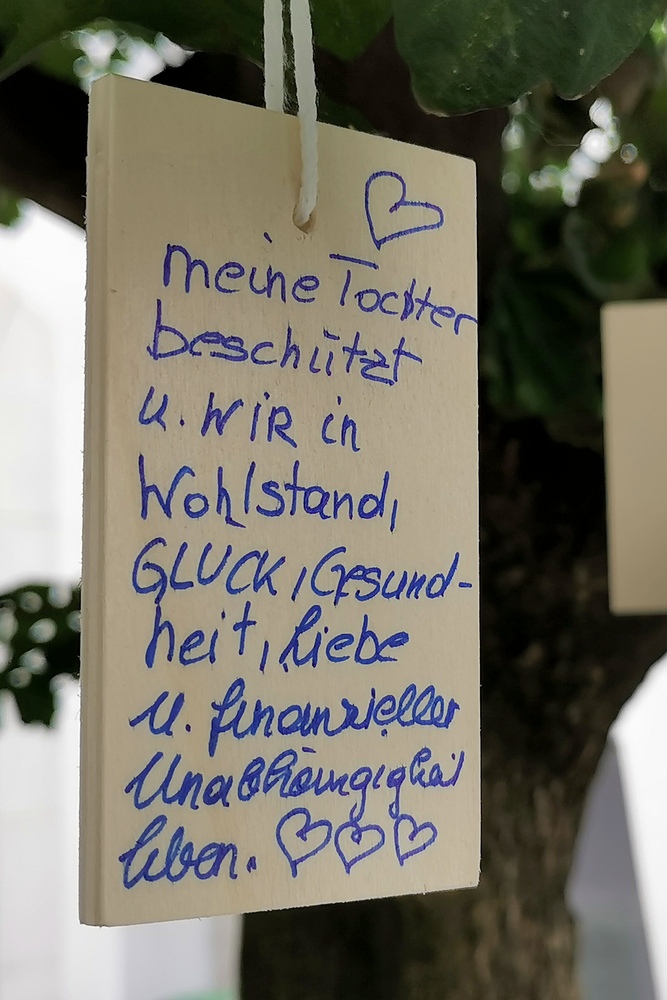 meine Tochter
beschützt
u. WIR in
Wohlstand,
GLUCK, Gesund-
heit, Liebe
u. finanzieller
Unabhängigkeit
leben.